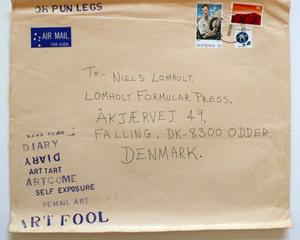 OH PUN LEGS
AIR MAIL
PAR AVION
AUSTRALIA
To:- NIELS LOMHOLT,
LOMHOLT FORMULAR PRESS,
ÅKJÆRVEJ 49,
FALLING. DK-8300 ODDER.
DENMARK.
DIARY
DIARY
ART TART
ARTCOME
SELF EXPOSURE
FEMAIL ART
ART FOOL